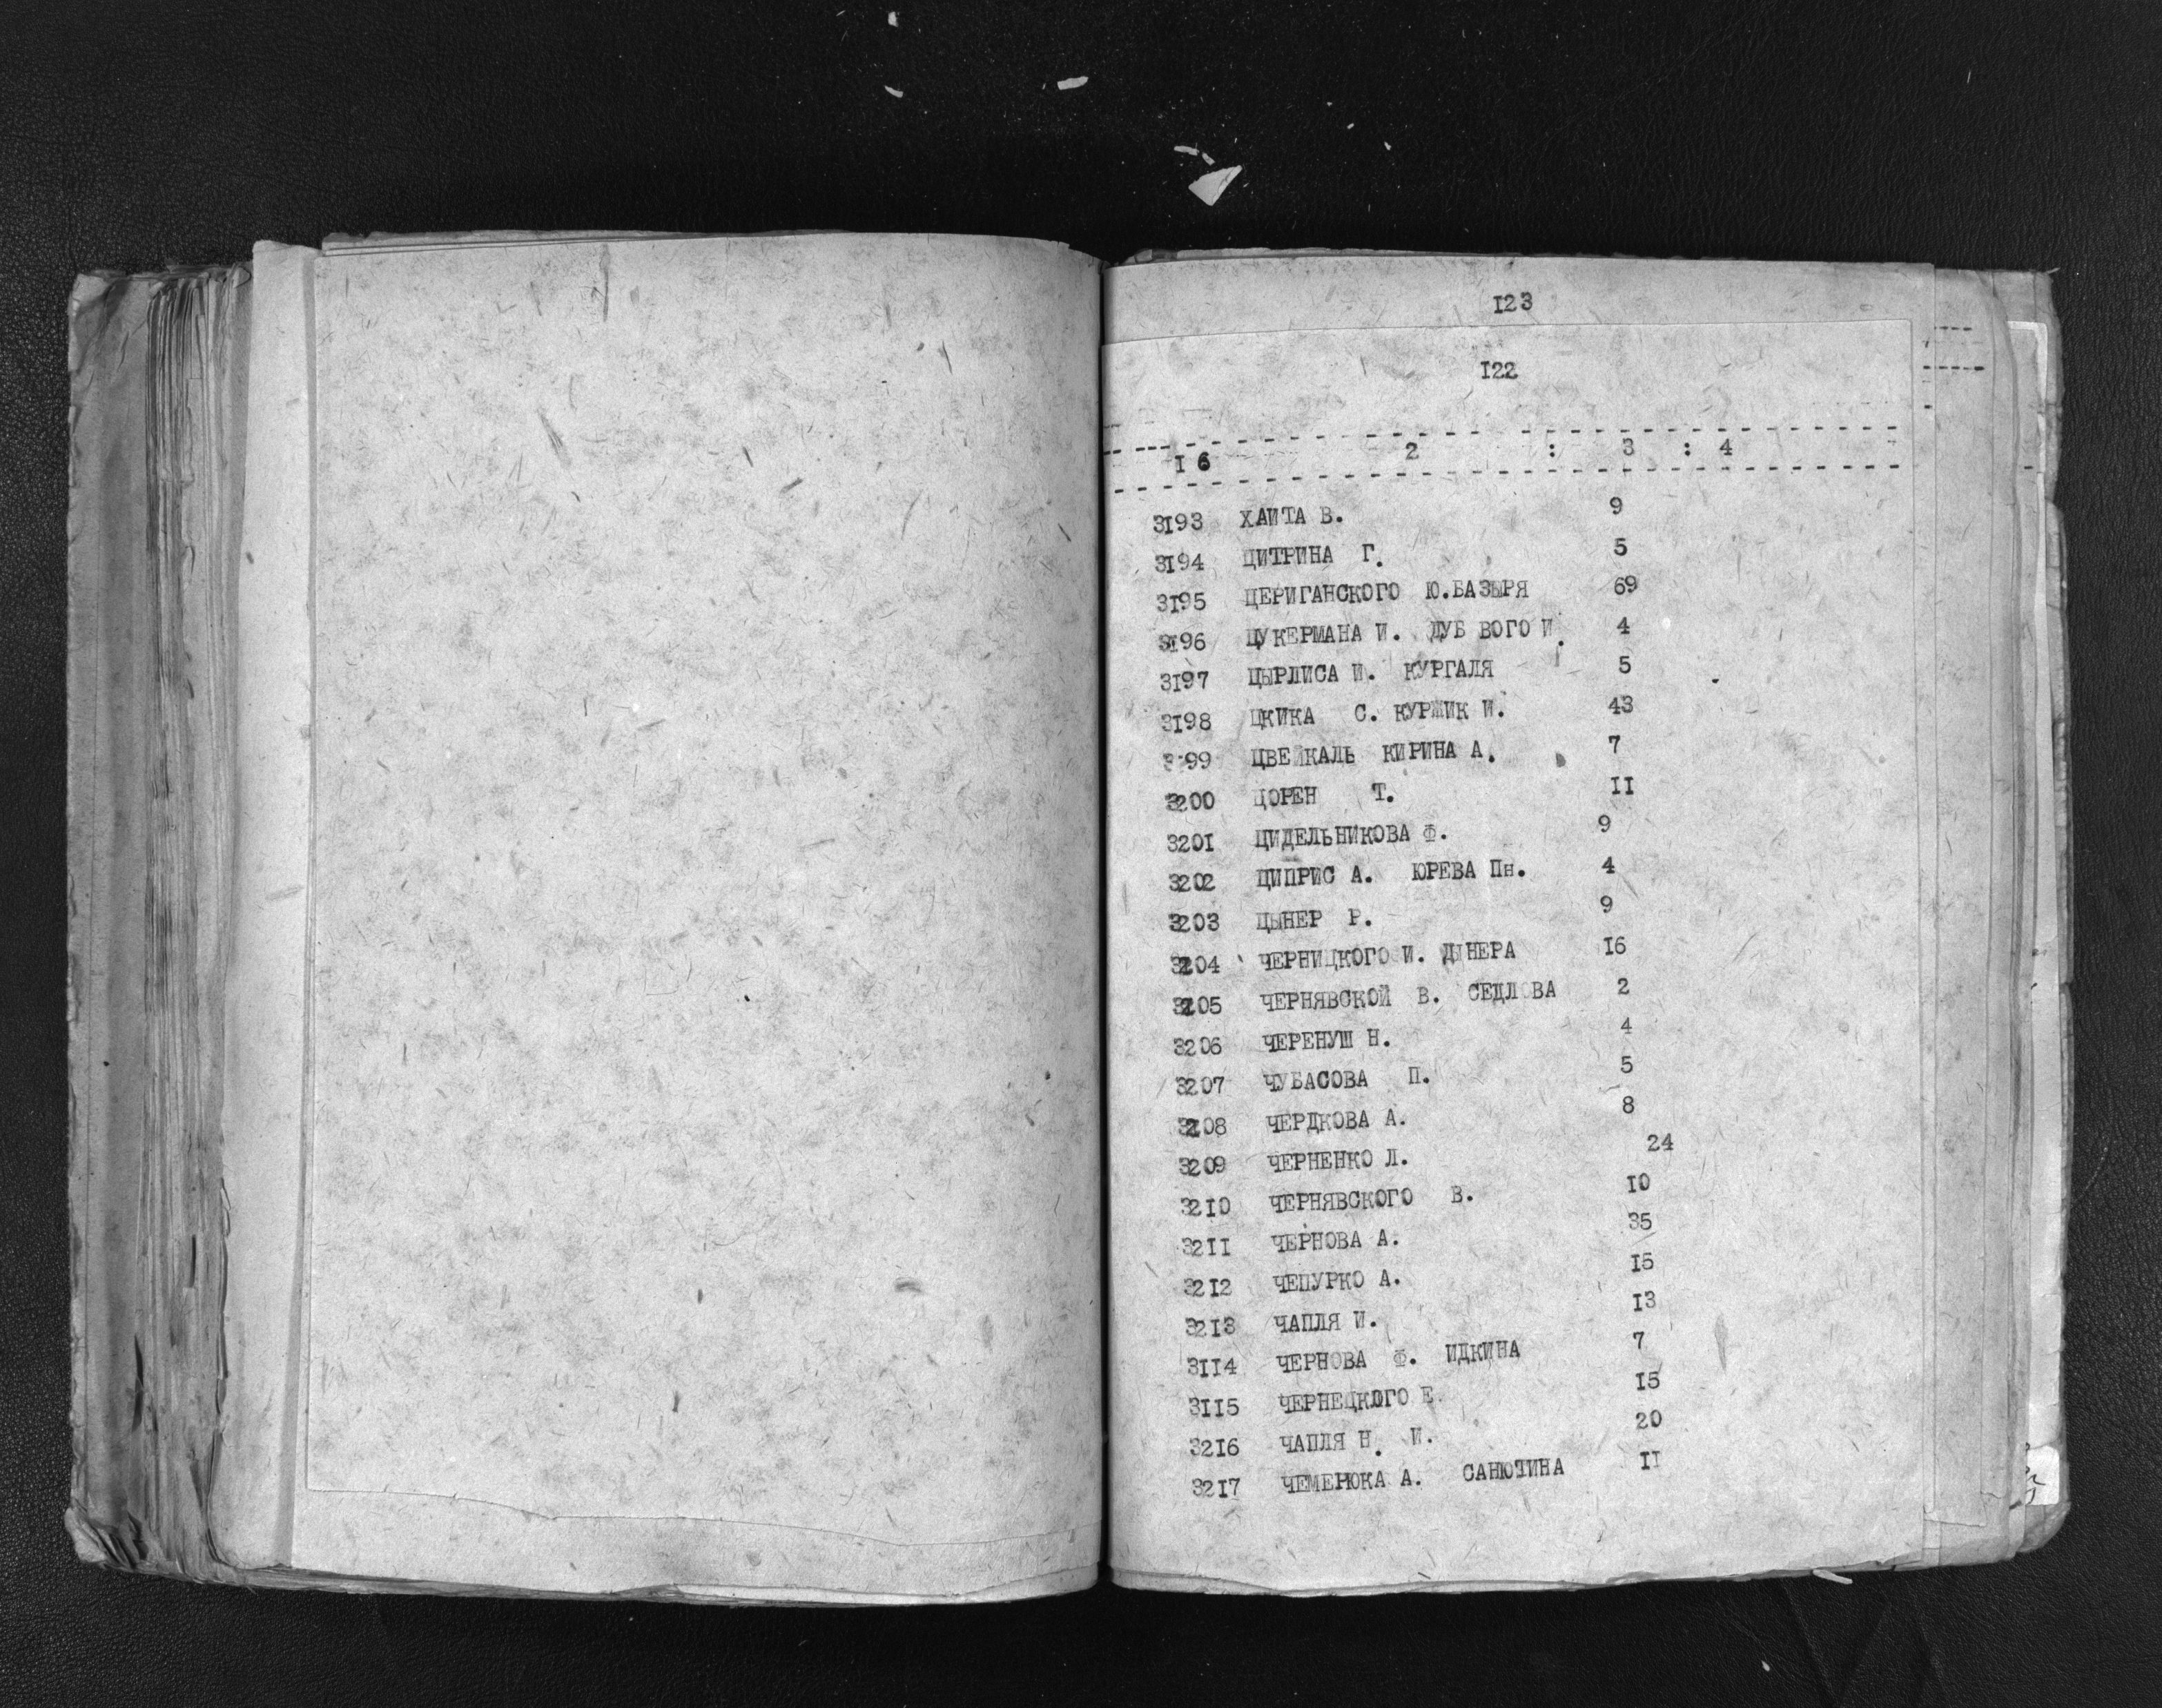 123
122
I 6 2 : 3 : 4
3193 ХАИТА В. 9
3194 ЦИТРИНА Г. 5
3195 ЦЕРИГАНСКОГО Ю.БАЗЫРЯ 69
3196 ЦУКЕРМАНА И. ДУБ ВОГО И. 4
3197 ЦЫРЛИСА И. КУРГАЛЯ 5
3198 ЦКИКА С. КУРЖИК И. 43
3199 ЦВЕЙКАЛЬ КИРИНА А. 7
3200 ЦОРЕН Т. II
3201 ЦИДЕЛЬНИКОВА Ф. 9
3202 ЦИПРИС А. ЮРЕВА Пн. 4
3203 ЦЫНЕР Р. 9
3204 ЧЕРНИЦКОГО И. ДЫНЕРА 16
3205 ЧЕРНЯВСКОЙ В. СЕДЛОВА 2
3206 ЧЕРЕНУШ Н. 4
3207 ЧУБАСОВА П. 5
3208 ЧЕРДКОВА А. 8
3209 ЧЕРНЕНКО Л. 24
3210 ЧЕРНЯВСКОГО В. 10
3211 ЧЕРНОВА А. 35
3212 ЧЕПУРКО А. 15
3213 ЧАПЛЯ И. 13
3114 ЧЕРНОВА Ф. ИДКИНА 7
3115 ЧЕРНЕЦКОГО Е. 15
3216 ЧАПЛЯ Н. И. 20
3217 ЧЕМЕРЮКА А. САНЮТИНА II